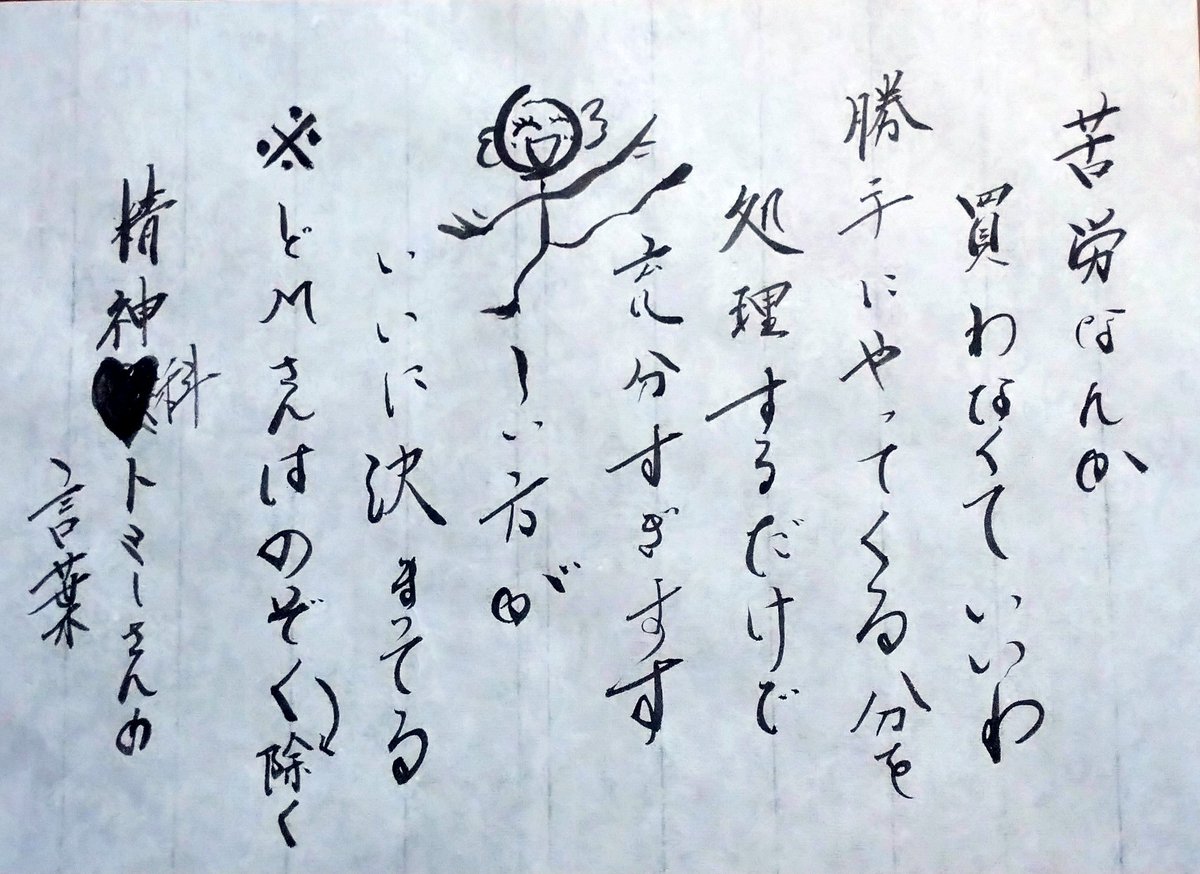 苦労なんか
買わなくていいわ
勝手にやってくる分を
処理するだけで
充分すぎます
しい方が
いいに決まってる
※ど川さんはのぞく
除く
精神科トミーさんの
言葉